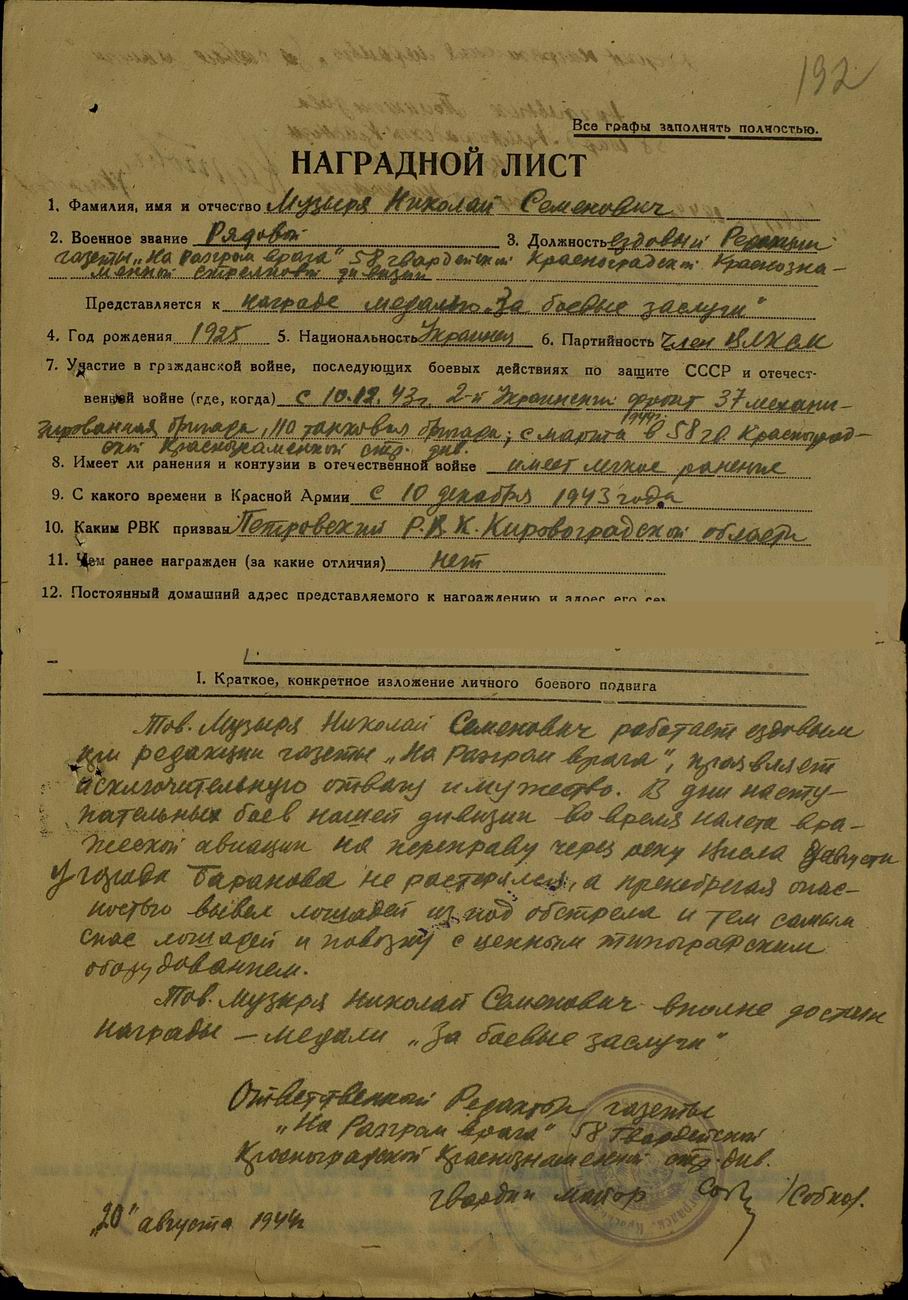 192
Все графы заполнять полностью.
НАГРАДНОЙ ЛИСТ
1. Фамилия, имя и отчество Музыря Николай Семенович
2. Военное звание Рядовой 3. Должность ездовый Редакции
газеты „На разгром врага" 58 гвардейской Красноградской Краснозна-
менной стрелковой дивизии
Представляется к награде медалью „За боевые заслуги"
4. Год рождения 1925 5. Национальность Украинец 6. Партийность Член ВЛКСМ
7. Участие в гражданской войне, последующих боевых действиях по защите СССР и отечест-
венной войне (где, когда) с 10.12.43г. 2-й Украинский фронт 37 механи-
зированная бригада, 110 танковая бригада; с марта 1944г. в 58 гв. Красноград-
ской Краснознаменной стр. див.
8. Имеет ли ранения и контузии в отечественной войне имеет легкое ранение
9. С какого времени в Красной Армии с 10 декабря 1943 года
10. Каким РВК призван Петровский Р.В.К. Кировоградской области
11. Чем ранее награжден (за какие отличия) нет
12. Постоянный домашний адрес представляемого к награждению и адрес его сем
I. Краткое, конкретное изложение личного боевого подвига
Тов. Музыря Николай Семенович работает ездовым
при редакции газеты „На Разгром врага", проявляет
исключительную отвагу и мужество. В дни насту-
пательных боев нашей дивизии во время налета вра-
жеской авиации на переправу через реку Висла августа
У города Баранова не растерялся, а пренебрегая опас-
ностью вывел лошадей из под обстрела и тем самым
спас лошадей и повозку с ценным типографским
оборудованием.
Тов. Музыря Николай Семенович вполне достоин
награды — медали „За боевые заслуги"
Ответственный Редактор газеты
„На Разгром врага" 58 Гвардейской
Красноградской Краснознаменной стр. див.
гвардии майор /Собко/.
„20" августа 1944г